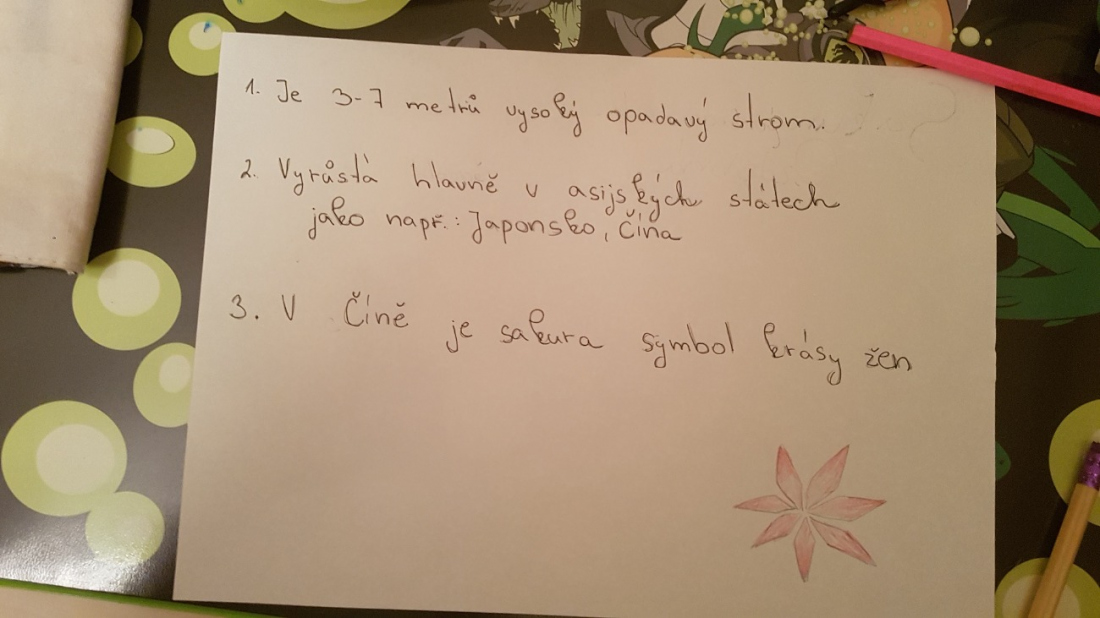 1. Je 3-7 metrů vysoký opadavý strom.
2. Vyrůstá hlavně v asijských státech
jako např.: Japonsko, Čína
3. V Číně je sakura symbol krásy žen